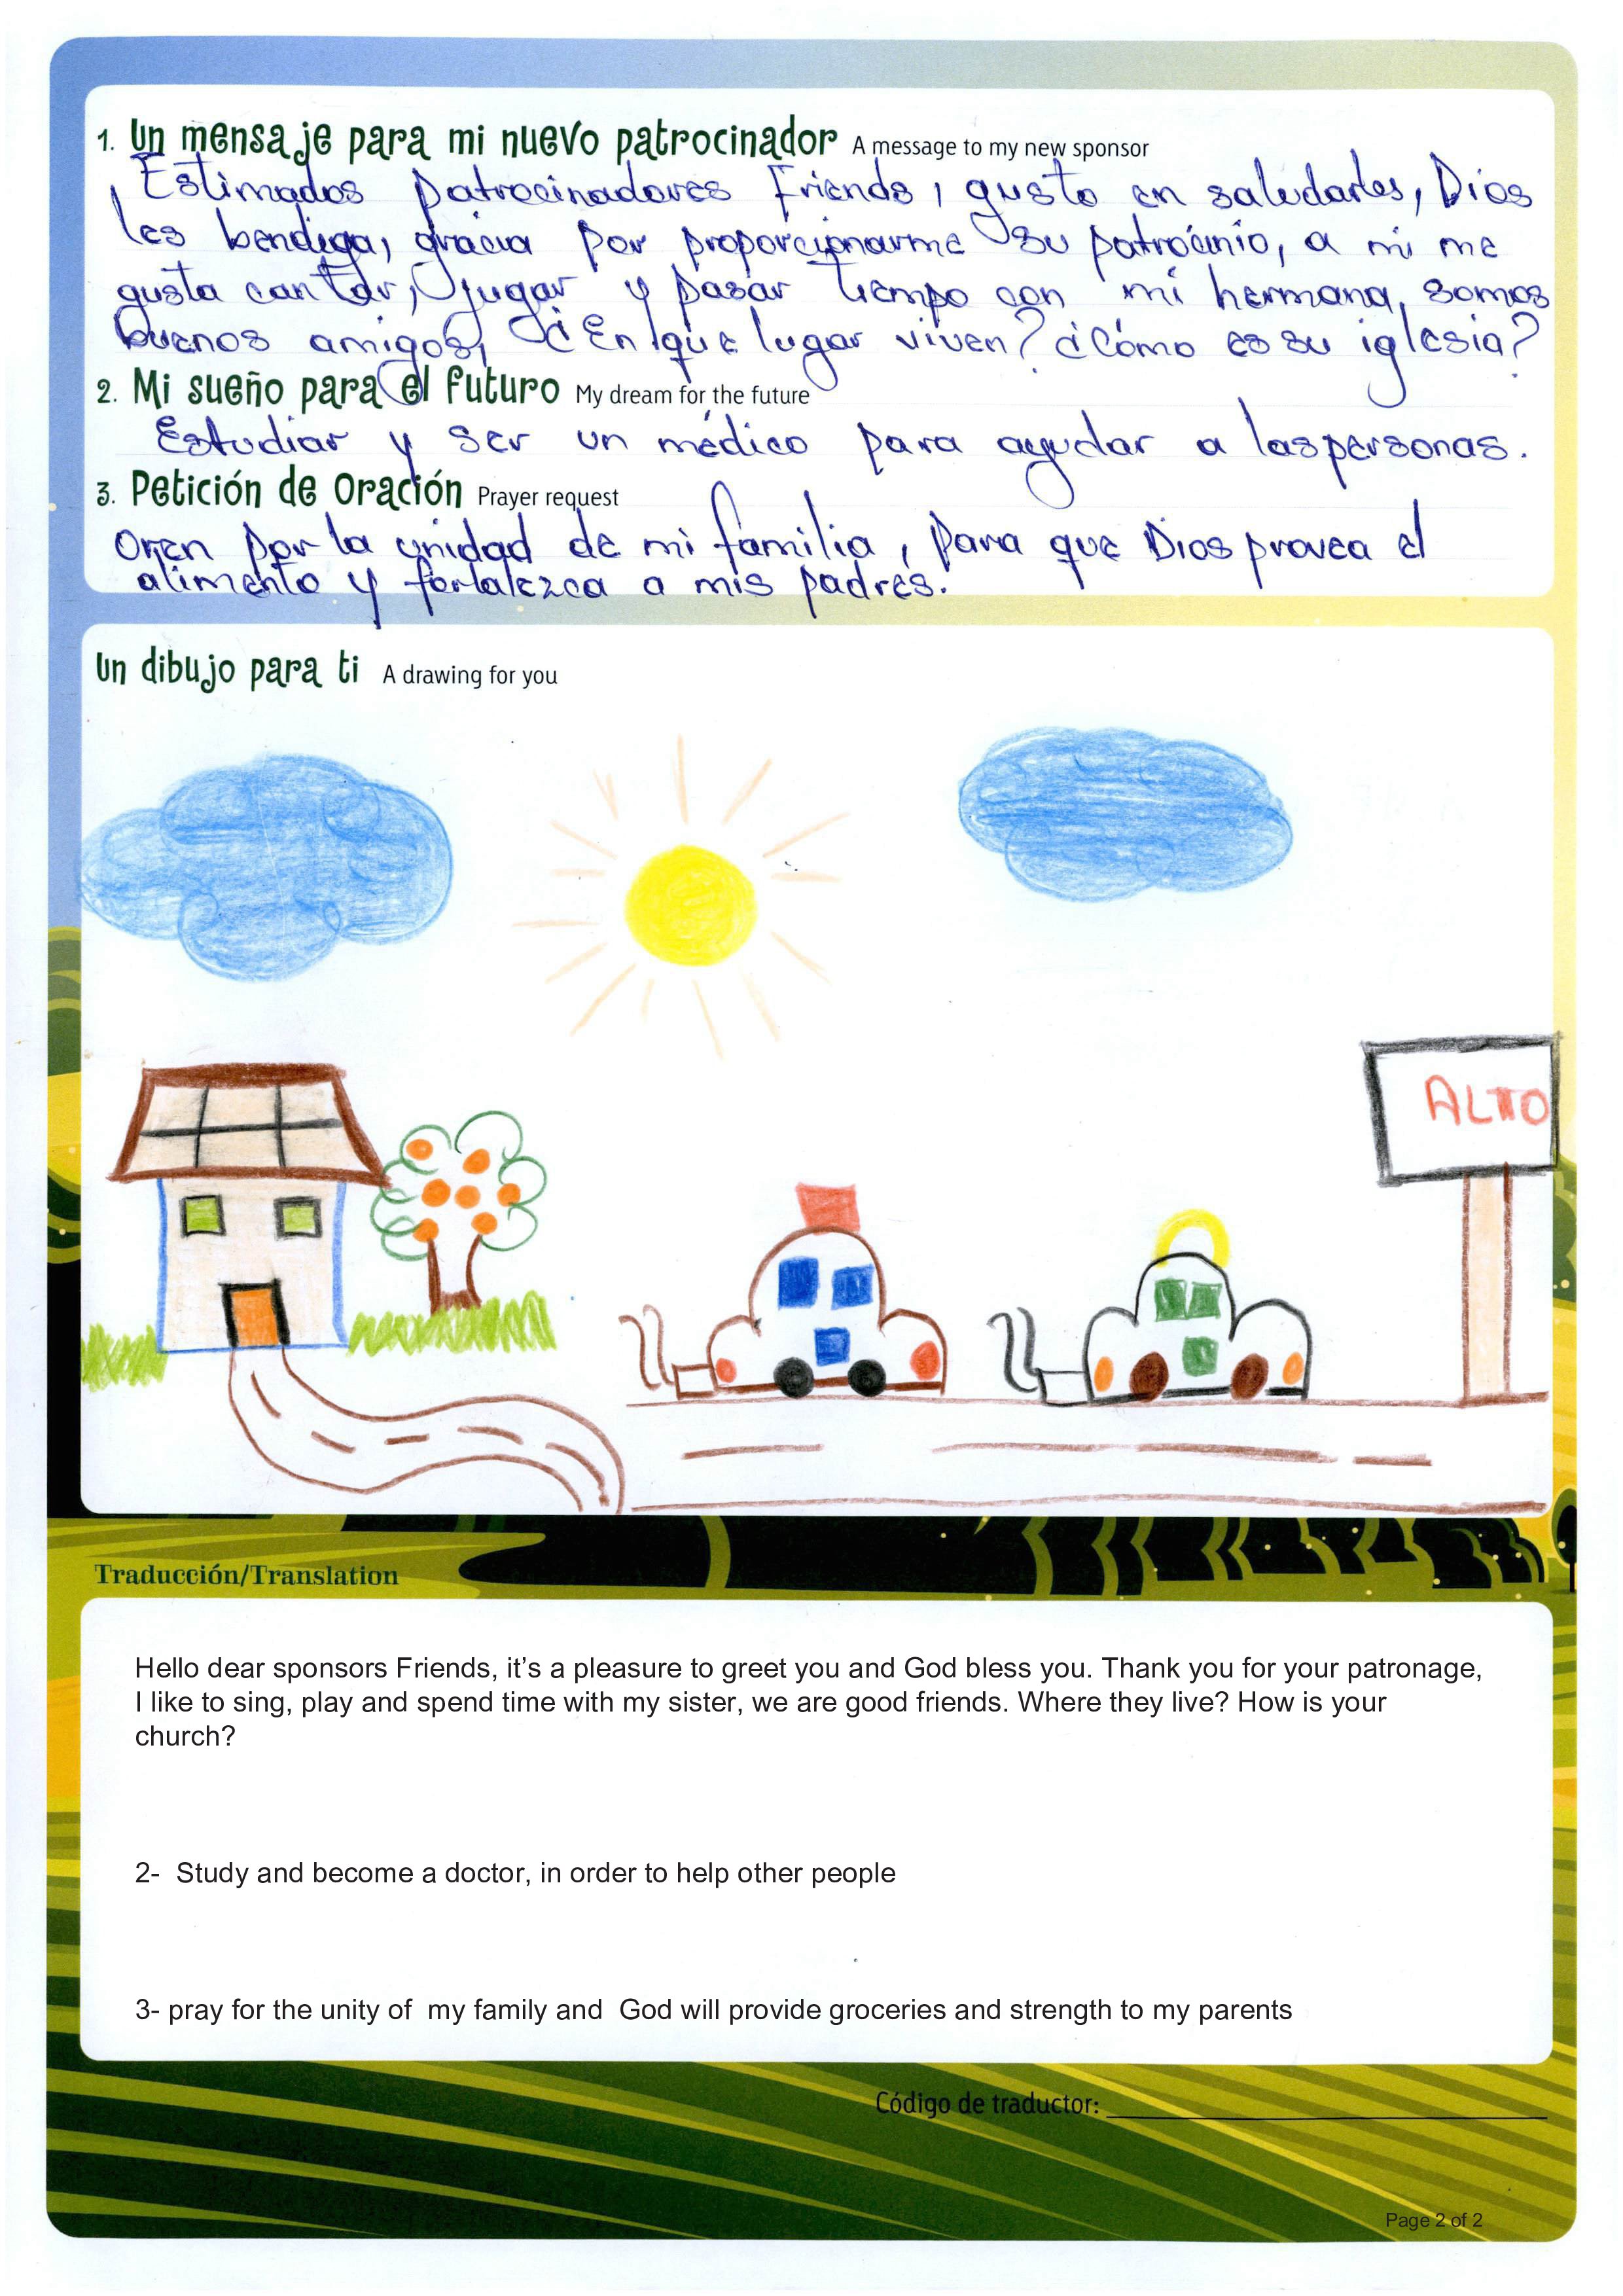 1. Un mensaje para mi nuevo patrocinador A message to my new sponsor
Estimados patrocinadores Friends, gusto en saludarles, Dios
les bendiga, gracia por proporcionarme su patrocinio, a mi me
gusta cantar, jugar y pasar tiempo con mi hermana, somos
buenos amigos, ¿En que lugar viven? ¿Cómo es su iglesia?
2. Mi sueño para el futuro My dream for the future
Estudiar y ser un médico para ayudar a las personas.
3. Petición de Oración Prayer request
Oren por la unidad de mi familia, para que Dios provea el
alimento y fortalezca a mis padres.
Un dibujo para ti A drawing for you
ALTO
Traducción/Translation
Hello dear sponsors Friends, it’s a pleasure to greet you and God bless you. Thank you for your patronage,
I like to sing, play and spend time with my sister, we are good friends. Where they live? How is your
church?
2- Study and become a doctor, in order to help other people
3- pray for the unity of my family and God will provide groceries and strength to my parents
Código de traductor:
Page 2 of 2